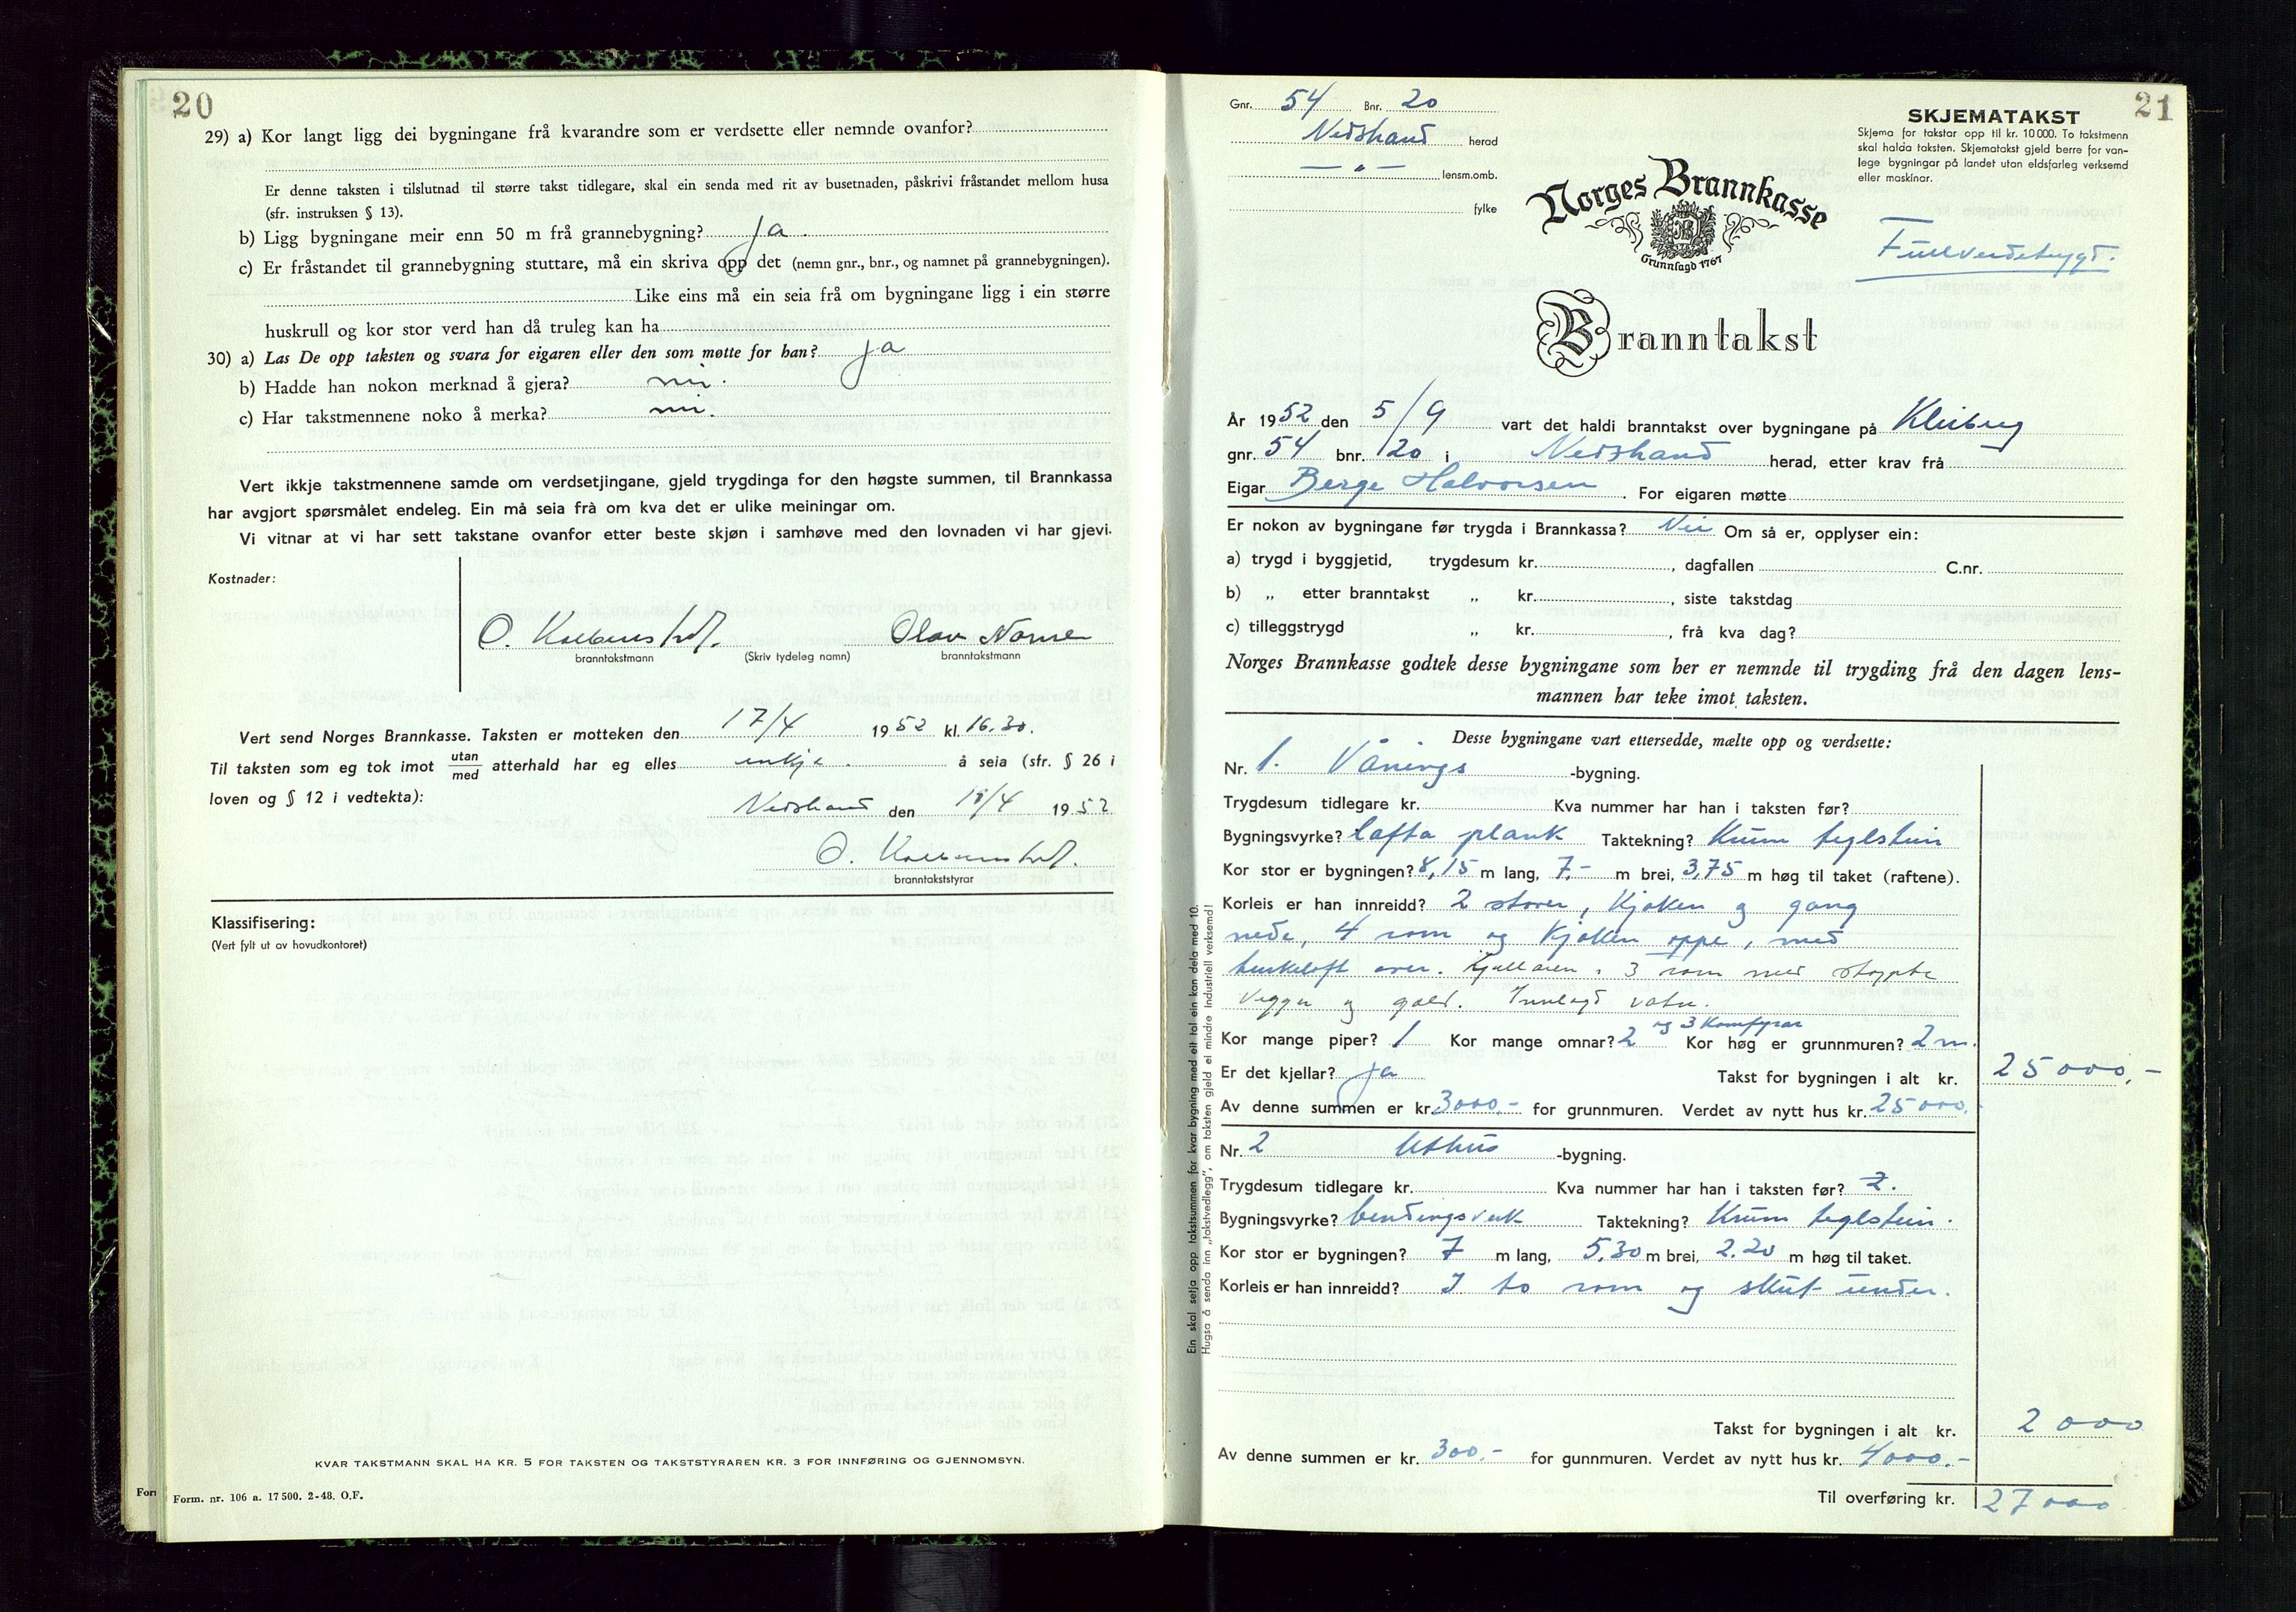 20
29) a) Kor langt ligg dei bygningane frå kvarandre som er verdsette eller nemnde ovanfor?
Er denne taksten i tilslutnad til større takst tidlegare, skal ein senda med rit av busetnaden, påskrivi fråstandet mellom husa
(sfr. instruksen § 13).
b) Ligg bygningane meir enn 50 m frå grannebygning? Ja.
c) Er fråstandet til grannebygning stuttare, må ein skriva opp det (nemn gnr., bnr., og namnet på grannebygningen).
Like eins må ein seia frå om bygningane ligg i ein større
huskrull og kor stor verd han då truleg kan ha
30) a) Las De opp taksten og svara for eigaren eller den som møtte for han? Ja
b) Hadde han nokon merknad å gjera? nei.
c) Har takstmennene noko å merka? nei.
Vert ikkje takstmennene samde om verdsetjingane, gjeld trygdinga for den høgste summen, til Brannkassa
har avgjort spørsmålet endeleg. Ein må seia frå om kva det er ulike meiningar om.
Vi vitnar at vi har sett takstane ovanfor etter beste skjøn i samhøve med den lovnaden vi har gjevi.
Kostnader:
O. Olav
branntakstmann (Skriv tydeleg namn) branntakstmann
Vert send Norges Brannkasse. Taksten er motteken den 17/4 1952 kl. 16.30.
Til taksten som eg tok imot utan/med atterhald har eg elles inkje. å seia (sfr. § 26 i
loven og § 12 i vedtekta):
Nedstrand den 18/4 1952
O.
branntakststyrar
Klassifisering:
(Vert fylt ut av hovudkontoret)
KVAR TAKSTMANN SKAL HA KR. 5 FOR TAKSTEN OG TAKSTSTYRAREN KR. 3 FOR INNFØRING OG GJENNOMSYN.
Form. nr. 106 a. 17 500. 2-48. O.F.
21
Gnr. 54 Bnr. 20
Nedstrand herad
— „ — lensm.omb.
fylke
SKJEMATAKST
Skjema for takstar opp til kr. 10 000. To takstmenn
skal halda taksten. Skjematakst gjeld berre for van-
lege bygningar på landet utan eldsfarleg verksemd
eller maskinar.
Norges Brannkasse
Grunnlagd 1767
Fullverdetrygd.
Branntakst
År 1952 den 5/9 vart det haldi branntakst over bygningane på Kleiberg
gnr. 54 bnr. 20 i Nedstrand herad, etter krav frå
Eigar Berge Halvorsen. For eigaren møtte
Er nokon av bygningane før trygda i Brannkassa? Nei Om så er, opplyser ein:
a) trygd i byggjetid, trygdesum kr. , dagfallen C.nr.
b) „ etter branntakst „ kr. , siste takstdag
c) tilleggstrygd „ kr. , frå kva dag?
Norges Brannkasse godtek desse bygningane som her er nemnde til trygding frå den dagen lens-
mannen har teke imot taksten.
Desse bygningane vart ettersedde, mælte opp og verdsette:
Nr. 1. Vånings -bygning.
Trygdesum tidlegare kr. Kva nummer har han i taksten før?
Bygningsvyrke? lafta plank Taktekning? Krum teglstein
Kor stor er bygningen? 8,15 m lang, 7,- m brei, 3,75 m høg til taket (raftene).
Korleis er han innreidd? 2 stover, kjøken og gang
nede, 4 rom og kjøken oppe, med
tørkeloft over. Kjellaren i 3 rom med støypte
vegger og golv. Innlagd vatn.
og 3 komfyrar
Kor mange piper? 1 Kor mange omnar? 2 Kor høg er grunnmuren? 2 m.
Er det kjellar? Ja Takst for bygningen i alt kr. 25 000,-
Av denne summen er kr. 3000,- for grunnmuren. Verdet av nytt hus kr. 25 000.-
Nr. 2 Uthus -bygning.
Trygdesum tidlegare kr. Kva nummer har han i taksten før? 2.
Bygningsvyrke? bendingsverk Taktekning? Krum teglstein.
Kor stor er bygningen? 7 m lang, 5,30 m brei, 2.20 m høg til taket.
Korleis er han innreidd? I to rom og skut under.
Takst for bygningen i alt kr. 2 000
Av denne summen er kr. 300.- for gunnmuren. Verdet av nytt hus kr. 4000.-
Til overføring kr. 27 000
Ein skal setja opp takstsummen for kvar bygning med eit tal ein kan dela med 10.
Hugsa å senda inn „takstvedlegg", om taksten gjeld ei mindre industriell verksemd!